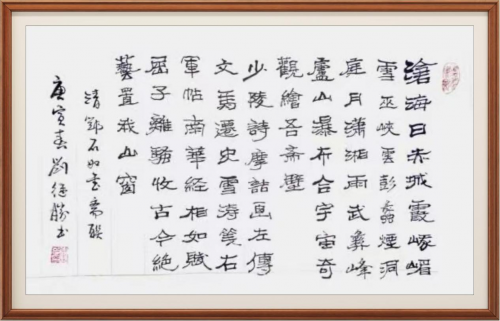 滄海日赤城霞峨嵋
雪巫峽雲彭蠡煙洞
庭月瀟湘雨武彝峰
廬山瀑布合宇宙奇
觀繪吾齋壁
少陵詩摩詰画左傳
文馬遷史雪濤箋右
軍帖南華經相如賦
屈子離騷收古今絕
藝置我山窗
清鄧石如書齋聯
庚寅春劉勝书